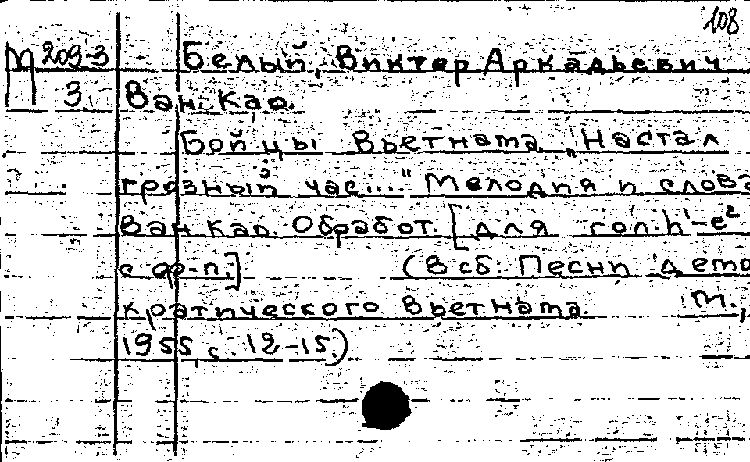 108
М 209-3 Белый, Виктор Аркадьевич
3 Ван Као.
Бойцы Вьетнама „Настал
грозный час...." Мелодия и слова
Ван Као. Обработ. [для гол. h'-e²
с ф-п.] (В сб: Песни демо
кратического Вьетнама М.,
1955, с. 12-15.)